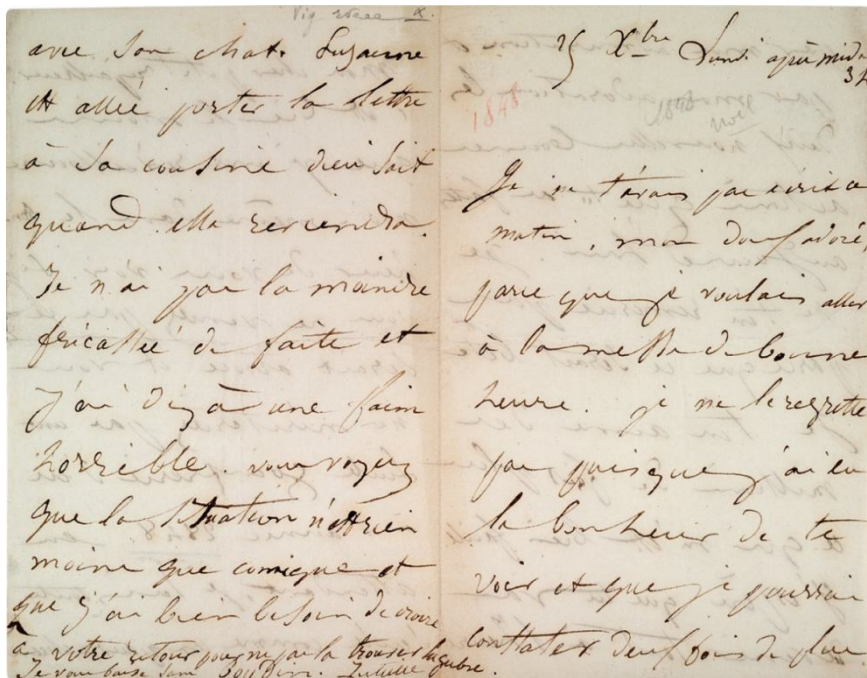 avec son chat. Suzanne
est allée porter la lettre
à sa cousine dieu sait
quand elle reviendra.
Je n'ai pas la moindre
fricassée de faite et
j'ai déjà une faim
horrible. vous voyez
que la situation n'est rien
moins que comique et
que j'ai bien besoin de croire
à votre retour pour ne pas la trouver lugubre.
Je vous baise sans Juliette
25 Xbre Lundi après midi
3h
1848
1848
noël
Je ne t'avais pas écrit ce
matin, mon doux adoré,
parce que je voulais aller
à la messe de bonne
heure. je ne le regrette
pas puisque j'ai eu
le bonheur de te
voir et que je pourrai
constater deux fois de plus